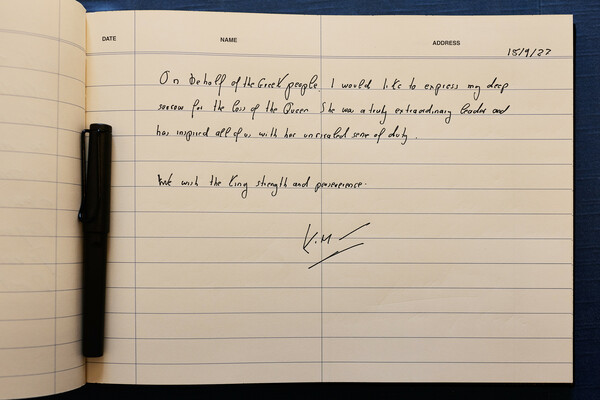 DATE NAME ADDRESS
15/9/22
On behalf of the Greek people I would like to express my deep
sorrow for the loss of the Queen She was a truly extraordinary leader and
has inspired all of us with her unrivaled sense of duty.
We wish the King strength and perseverence.
K.M